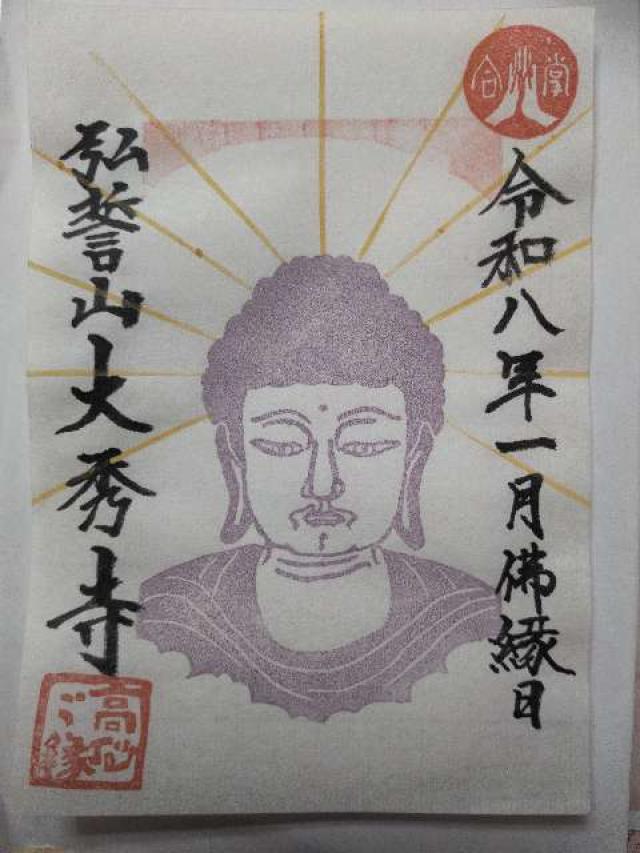 合掌
令和八年一月佛縁日
弘誓山大秀寺